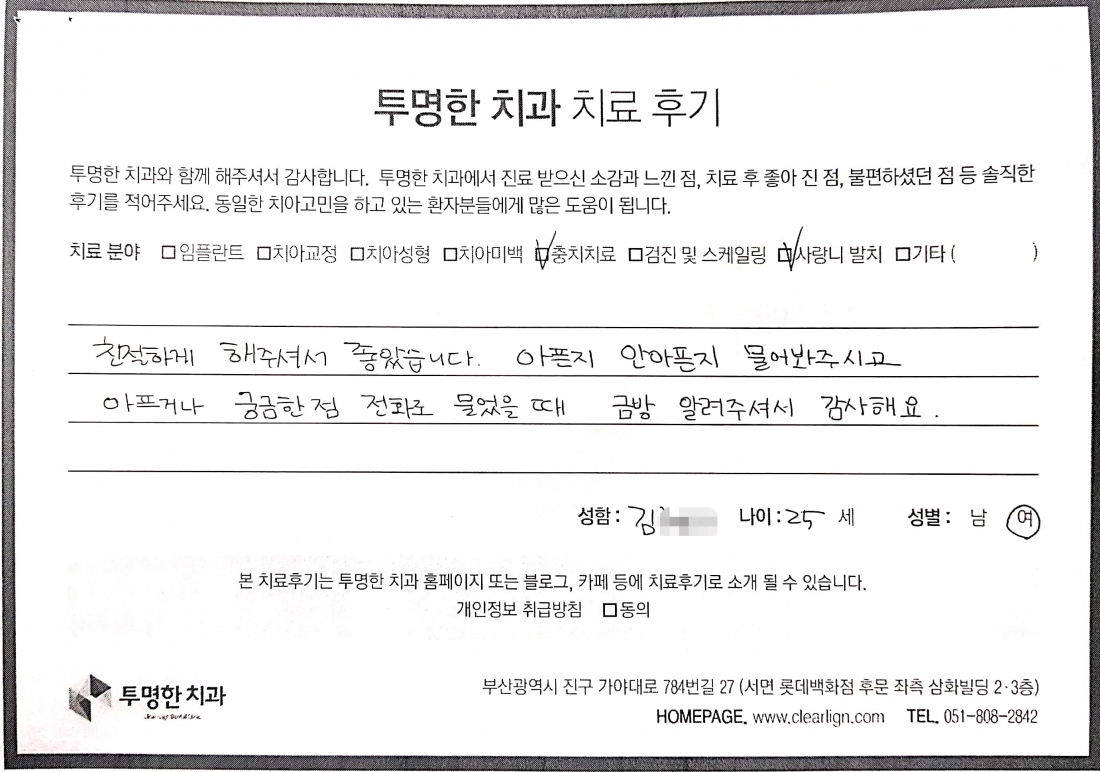 투명한 치과 치료 후기
투명한 치과와 함께 해주셔서 감사합니다. 투명한 치과에서 진료 받으신 소감과 느낀 점, 치료 후 좋아 진 점, 불편하셨던 점 등 솔직한
후기를 적어주세요. 동일한 치아고민을 하고 있는 환자분들에게 많은 도움이 됩니다.
치료 분야 □임플란트 □치아교정 □치아성형 □치아미백 ☑충치치료 □검진 및 스케일링 ☑사랑니 발치 □기타 ( )
친절하게 해주셔서 좋았습니다. 아픈지 안아픈지 물어봐주시고
아프거나 궁금한점 전화로 물었을 때 금방 알려주셔서 감사해요.
성함 : 김 나이 : 25 세 성별 : 남 여
본 치료후기는 투명한 치과 홈페이지 또는 블로그, 카페 등에 치료후기로 소개 될 수 있습니다.
개인정보 취급방침 □동의
투명한 치과
부산광역시 진구 가야대로 784번길 27 (서면 롯데백화점 후문 좌측 삼화빌딩 2·3층)
HOMEPAGE. www.clearlign.com TEL. 051-808-2842